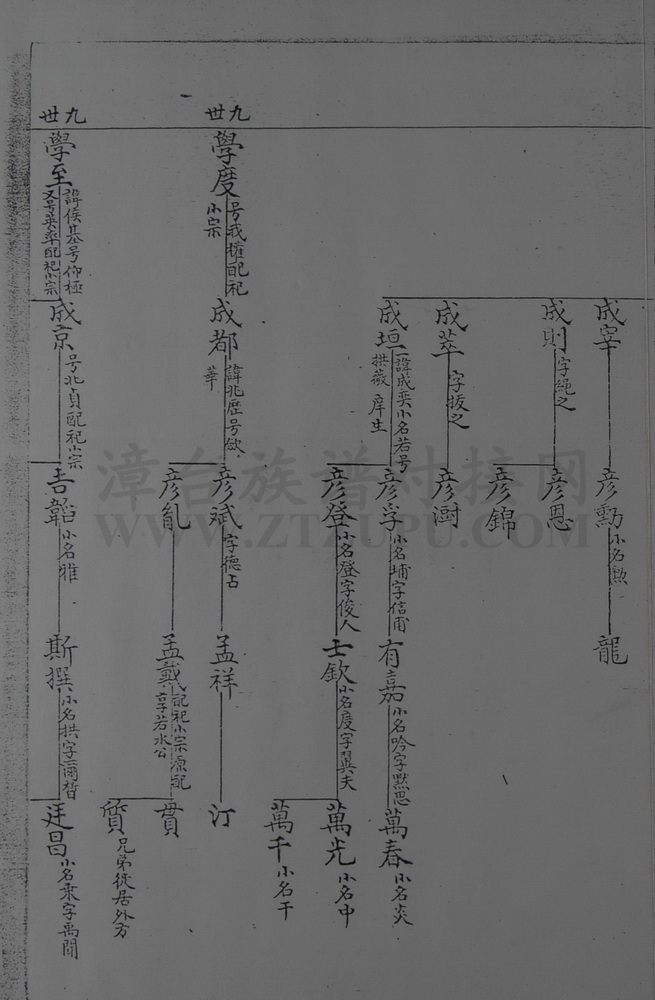 成宰
彥勳 小名勲
龍
成則 字繩之
彥恩
彥錦
成萃 字拔之
彥澍
成垣 諱成奕小名若号
拱薇 庠生
彥孚 小名埔字信甫
有嘉 小名吟字默思
萬春 小名炎
彥登 小名登字俊人
士欽 小名度字巽夫
萬光 小名中
萬千 小名干
九世
學度 号我權配祀
小宗
成都 諱兆歷号
華
彥斌 字德占
孟祥
汀
彥胤
孟戴 配祀小宗原配
享若水公
貫
質 兄弟徙居外方
九世
學至 諱侯基号仰極
又号英率配祀小宗
成京 号北貞配祀小宗
吉韜 小名雅
斯撰 小名拱字爾哲
廷昌 小名乘字禹聞
漳台族谱对接网
WWW.ZTZUPU.COM